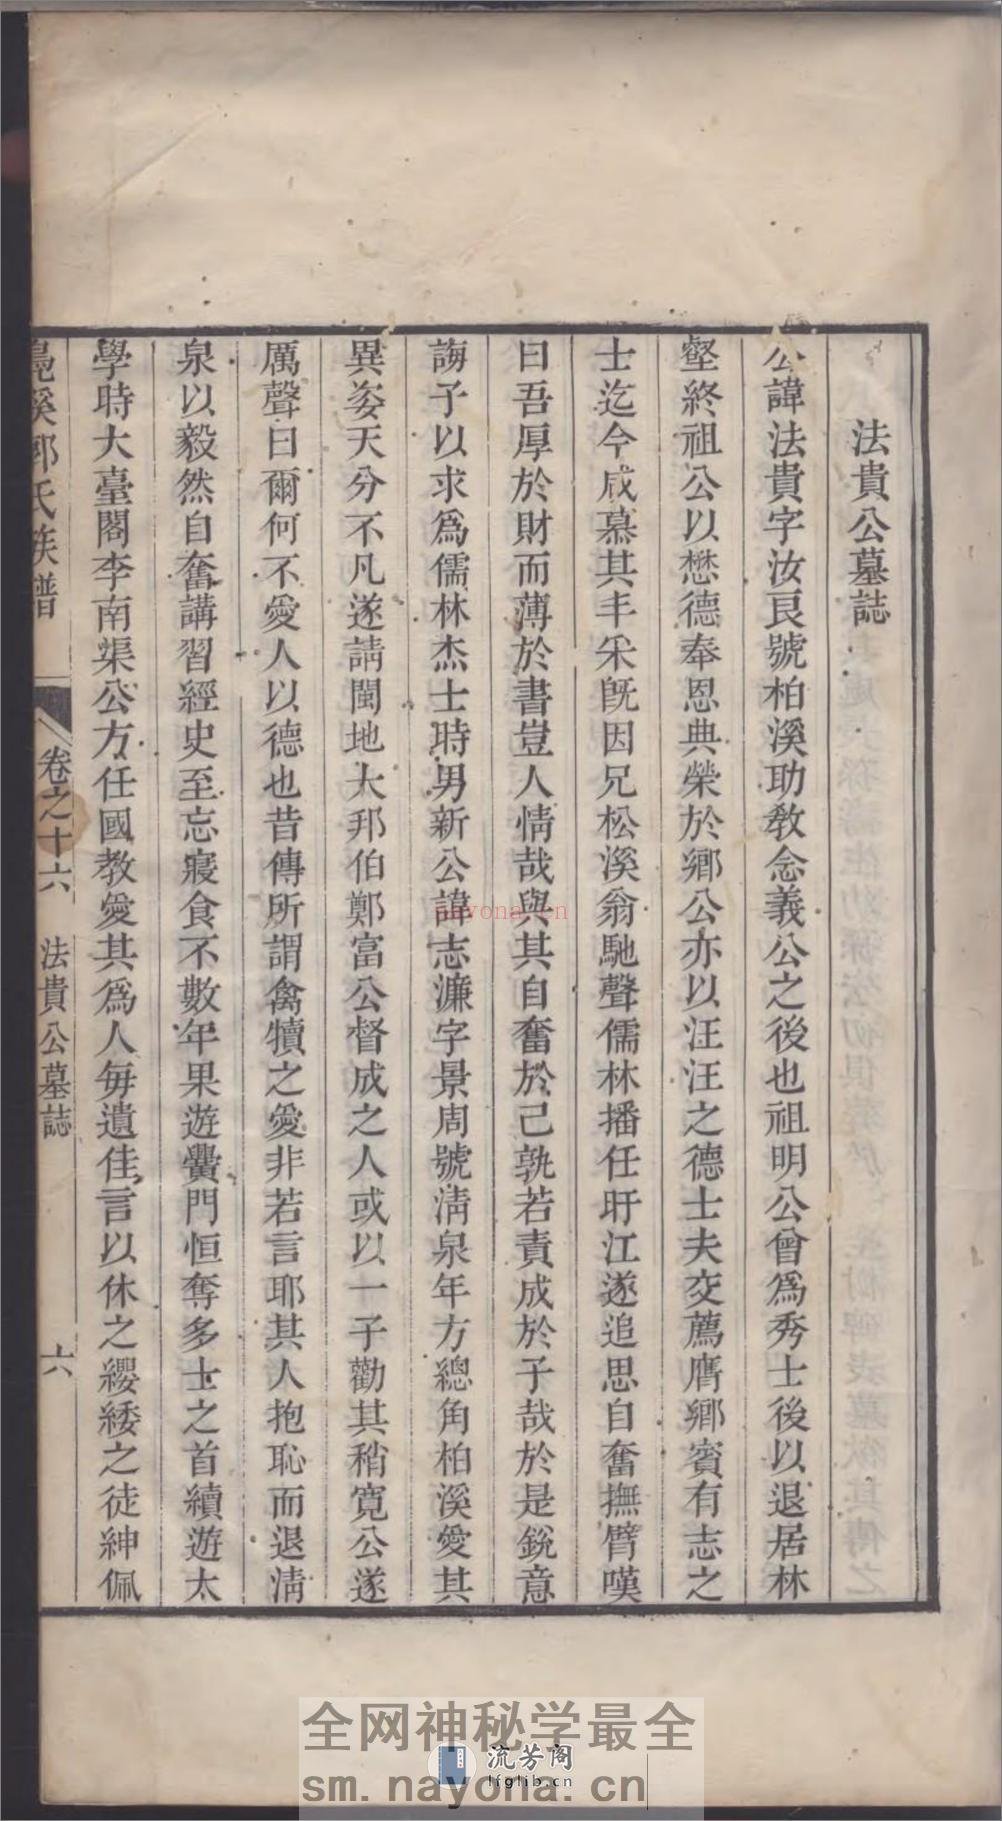 法貴公墓誌
公諱法貴字汝良號柏溪助教念義公之後也祖明公曾爲秀士後以退居林
壑終祖公以懋德奉恩典榮於鄉公亦以汪汪之德士夫交薦膺鄉賓有志之
士迄今咸慕其丰采旣因兄松溪翁馳聲儒林播任旴江遂追思自奮撫臂嘆
曰吾厚於財而薄於書豈人情哉與其自奮於己孰若責成於子哉於是銳意
誨子以求爲儒林杰士時男新公諱志濂字景周號淸泉年方總角柏溪愛其
異姿天分不凡遂請閩地大邦伯鄭富公督成之人或以一子勸其稍寬公遂
厲聲曰爾何不愛人以德也昔傳所謂禽犢之愛非若言耶其人抱恥而退淸
泉以毅然自奮講習經史至忘寢食不數年果遊黌門恒奪多士之首續遊太
學時大臺閣李南渠公方任國教愛其爲人每遺佳言以休之纓緌之徒紳佩
溪郭氏族譜
卷之十六
法貴公墓誌
六
nayona.cn
全网神秘学最全
流芳阁
lfglib.cn
sm.nayona.cn